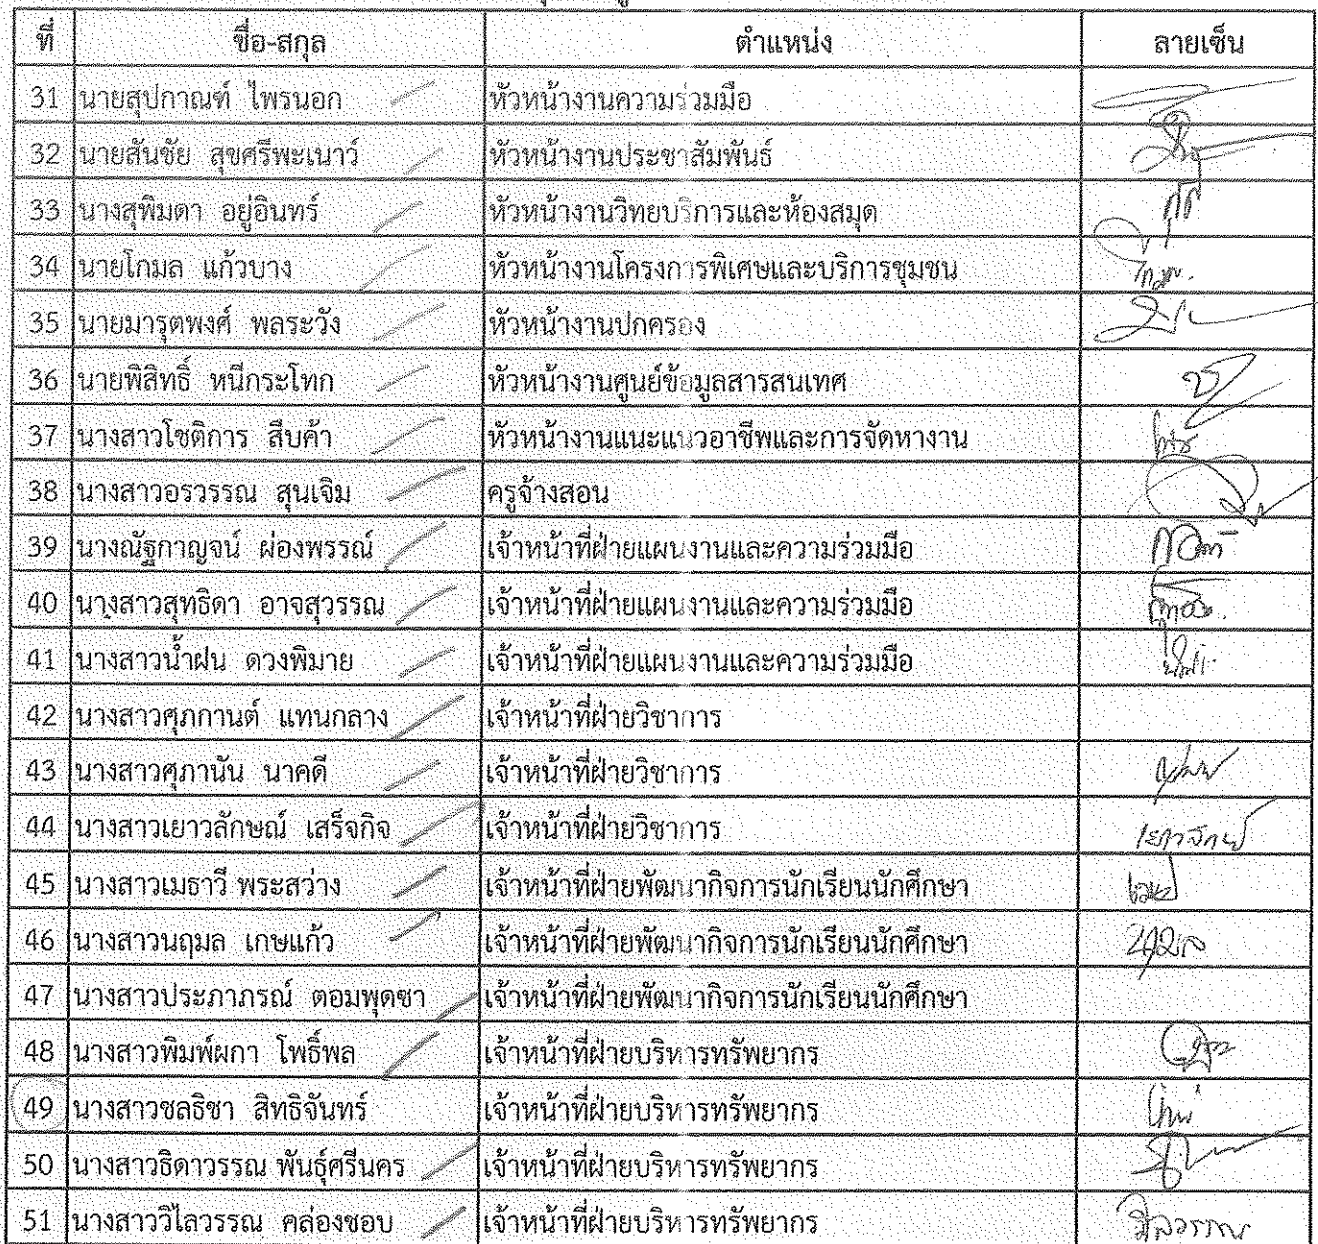 ที่ ชื่อ-สกุล ตำแหน่ง ลายเซ็น
31 นายสุปกาณฑ์ ไพรนอก หัวหน้างานความร่วมมือ
32 นายสันชัย สุขศรีพะเนาว์ หัวหน้างานประชาสัมพันธ์
33 นางสุพิมดา อยู่อินทร์ หัวหน้างานวิทยบริการและห้องสมุด
34 นายโกมล แก้วบาง หัวหน้างานโครงการพิเศษและบริการชุมชน
35 นายมารุตพงศ์ พลระวัง หัวหน้างานปกครอง
36 นายพิสิทธิ์ หนีกระโทก หัวหน้างานศูนย์ข้อมูลสารสนเทศ
37 นางสาวโชติการ สืบค้า หัวหน้างานแนะแนวอาชีพและการจัดหางาน
38 นางสาวอรวรรณ สุนเจิม ครูจ้างสอน
39 นางณัฐกาญจน์ ผ่องพรรณ์ เจ้าหน้าที่ฝ่ายแผนงานและความร่วมมือ
40 นางสาวสุทธิดา อาจสุวรรณ เจ้าหน้าที่ฝ่ายแผนงานและความร่วมมือ
41 นางสาวน้ำฝน ดวงพิมาย เจ้าหน้าที่ฝ่ายแผนงานและความร่วมมือ
42 นางสาวศุภกานต์ แทนกลาง เจ้าหน้าที่ฝ่ายวิชาการ
43 นางสาวศุภานัน นาคดี เจ้าหน้าที่ฝ่ายวิชาการ
44 นางสาวเยาวลักษณ์ เสร็จกิจ เจ้าหน้าที่ฝ่ายวิชาการ
45 นางสาวเมธาวี พระสว่าง เจ้าหน้าที่ฝ่ายพัฒนากิจการนักเรียนนักศึกษา
46 นางสาวนฤมล เกษแก้ว เจ้าหน้าที่ฝ่ายพัฒนากิจการนักเรียนนักศึกษา
47 นางสาวประภาภรณ์ ตอมพุดซา เจ้าหน้าที่ฝ่ายพัฒนากิจการนักเรียนนักศึกษา
48 นางสาวพิมพ์ผกา โพธิ์พล เจ้าหน้าที่ฝ่ายบริหารทรัพยากร
49 นางสาวชลธิชา สิทธิจันทร์ เจ้าหน้าที่ฝ่ายบริหารทรัพยากร
50 นางสาวธิดาวรรณ พันธุ์ศรีนคร เจ้าหน้าที่ฝ่ายบริหารทรัพยากร
51 นางสาววิไลวรรณ คล่องชอบ เจ้าหน้าที่ฝ่ายบริหารทรัพยากร